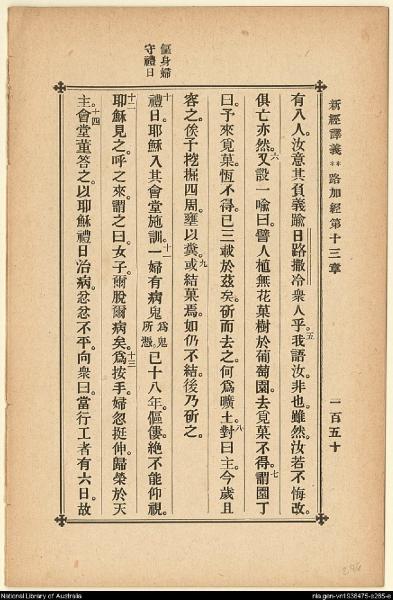 新經譯義**路加經第十三章
一百五十
有八人。汝意其負義踰日路撒冷衆人乎。五我語汝。非也。雖然汝若不悔改。
俱亡亦然。六又設一喩曰。譬人植無花菓樹於葡萄園。去覓菓不得。七謂園丁
曰。予來覓菓。恆不得。已三載於茲矣。斫而去之。何爲曠土。八對曰。主。今歲且
容之。俟予挖掘四周。壅以糞。九或結菓焉。如仍不結。後乃斫之。
傴身婦
守禮日
十禮日。耶穌入其會堂施訓。十一一婦有病鬼爲鬼所憑。已十八年。傴僂絕不能仰視。
十二耶穌見之。呼之來。謂之曰。女子。爾脫爾病矣。十三爲按手。婦忽挺伸。歸榮於天
主。十四會堂董答之。以耶穌禮日治病。忿忿不平。向衆曰。當行工者有六日。故
296
National Library of Australia
nla.gen-vn1938475-s265-e